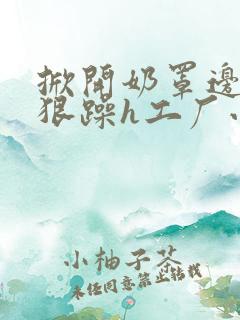 掀開奶罩邊
狠躁h工厂、
小柚子茶
未经同意禁止转载